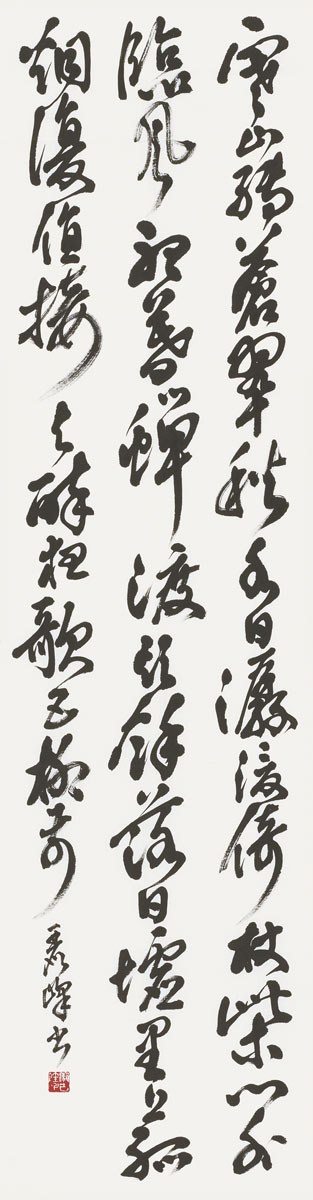 寒山轉蒼翠秋水日潺湲倚杖柴門外
臨風聽暮蟬渡頭餘落日墟里上孤
烟復值接与醉狂歌五柳前
峰書